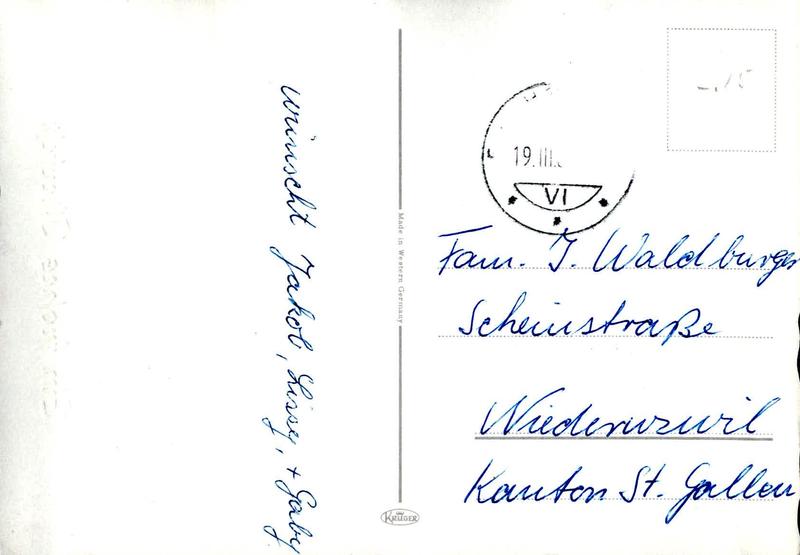 wünscht Jakob, Lissy, + Gaby
Made in Western Germany
KRÜGER
19.III.
VI
Fam. J. Waldburger
Scheinstraße
Niederuzwil
Kanton St. Gallen